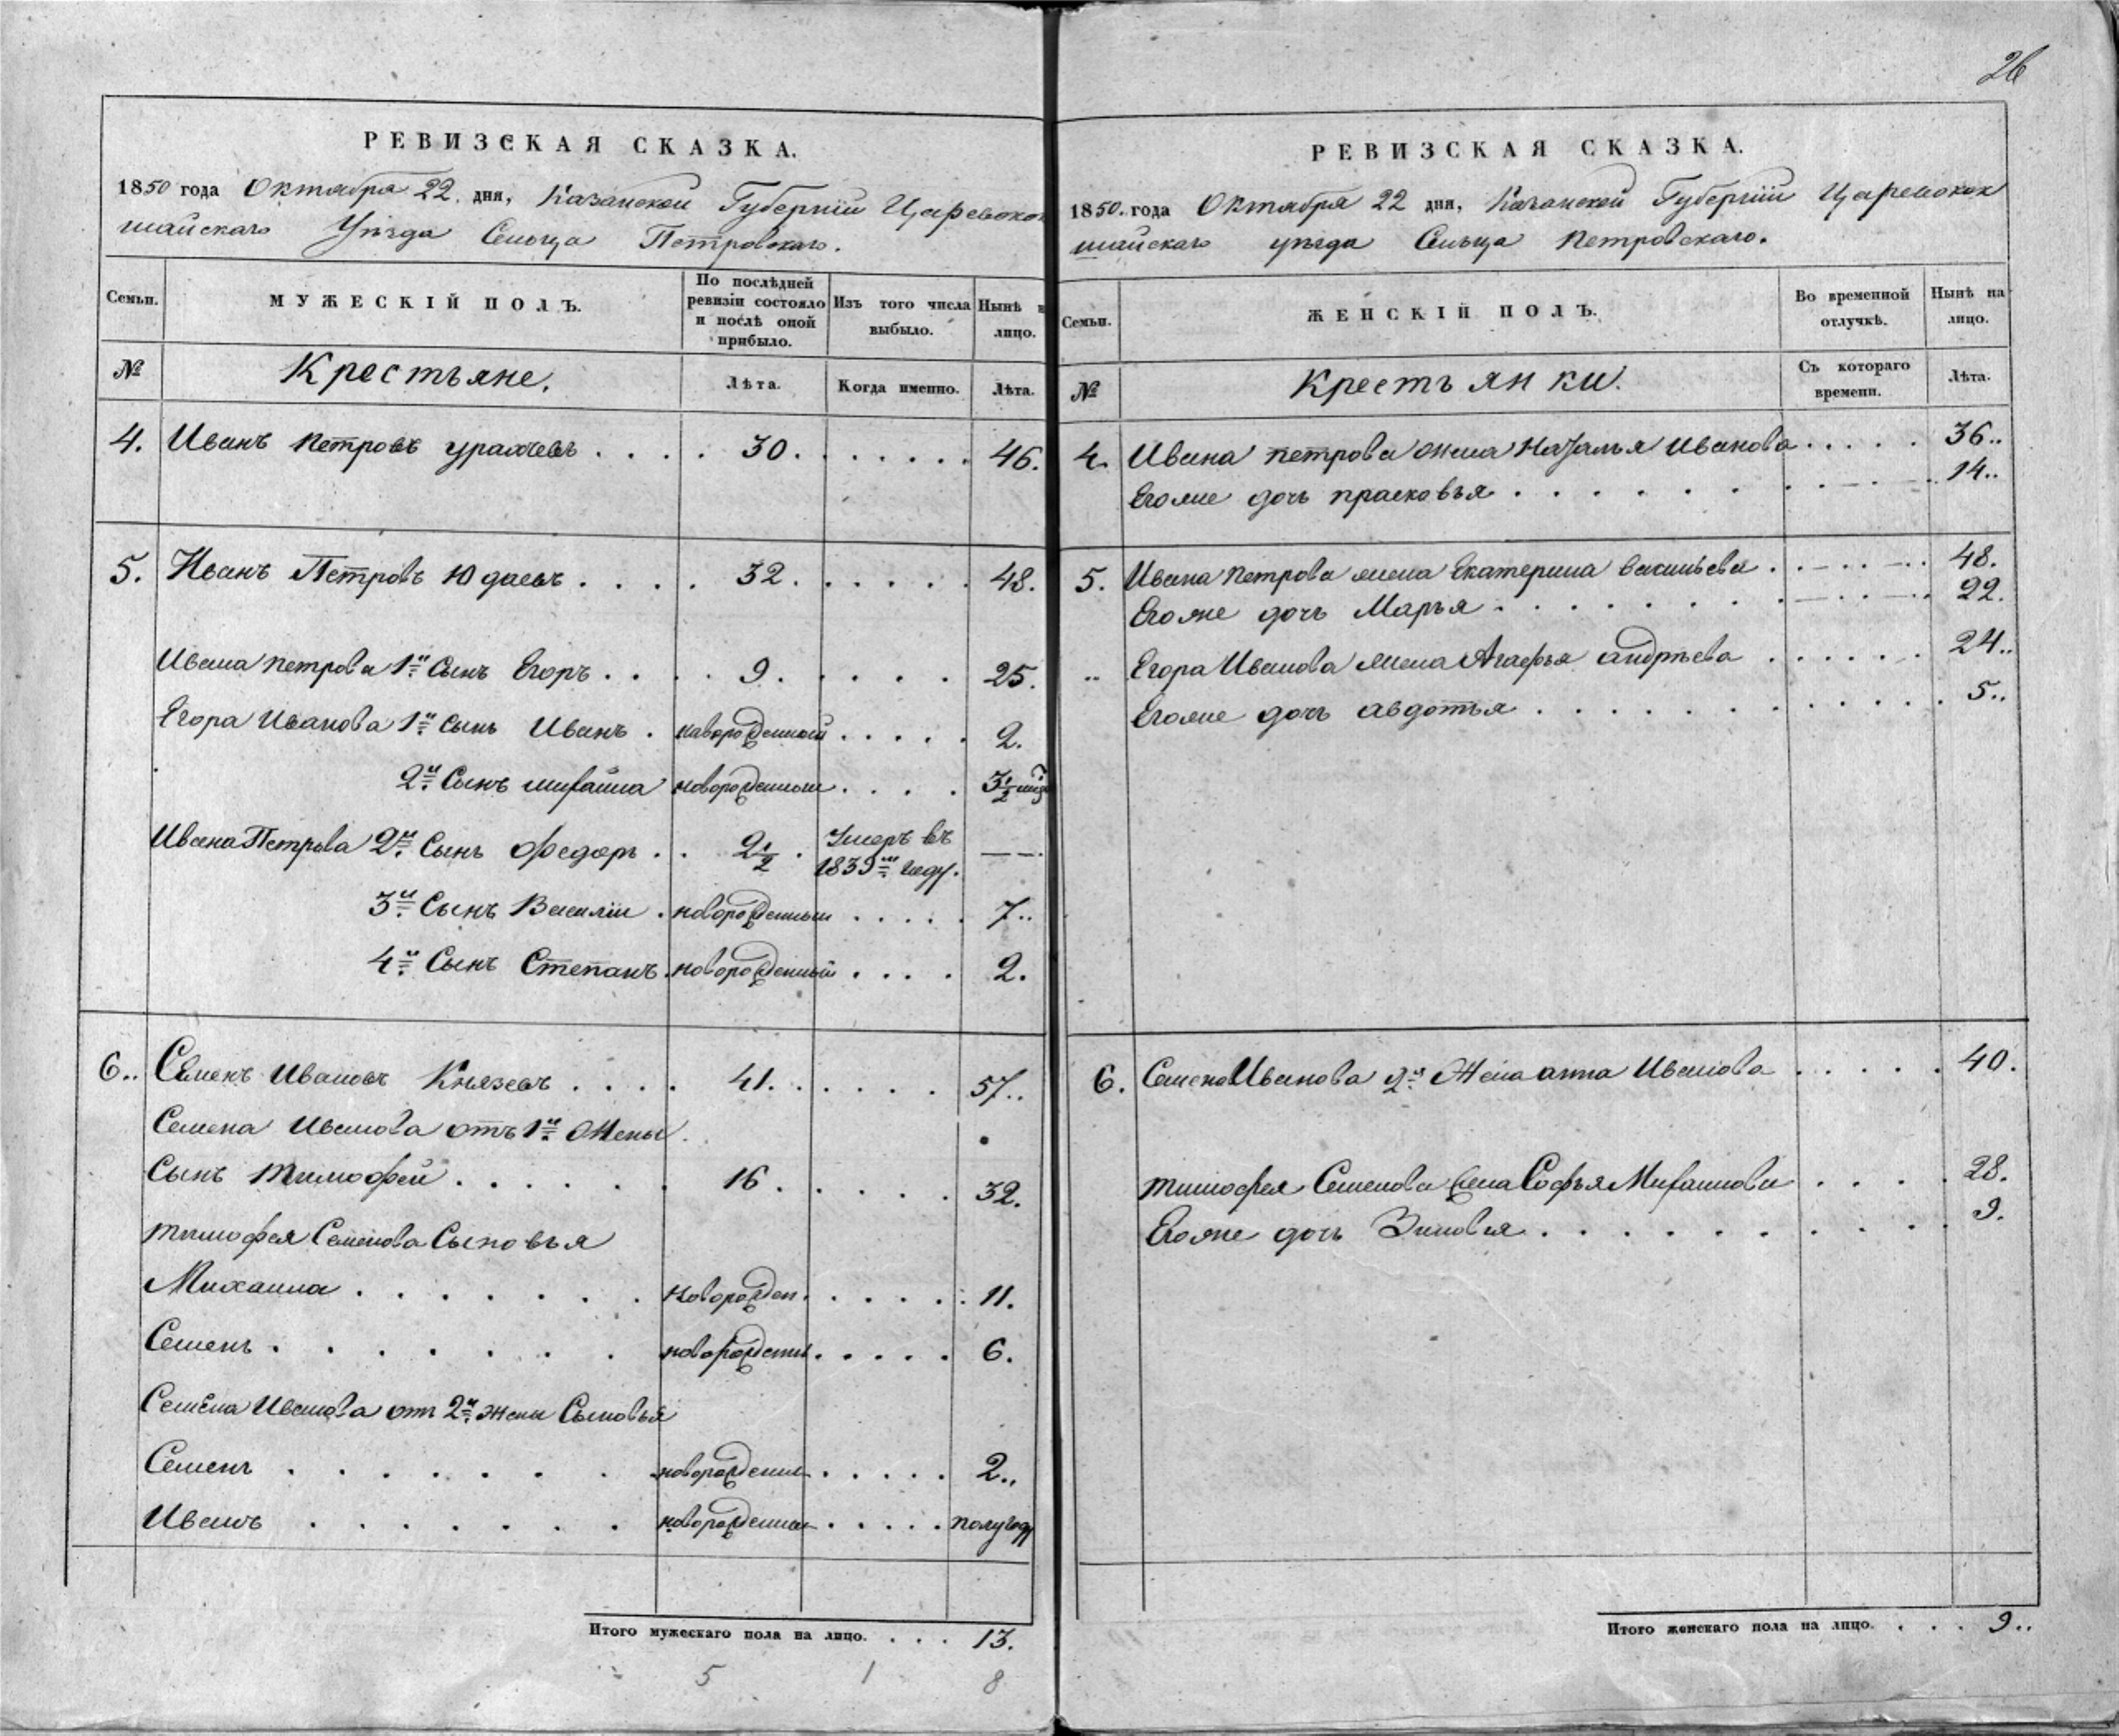 26
РЕВИЗСКАЯ СКАЗКА.
1850 года Октября 22. дня, Казанской Губернiи Царевокок
шайскаго Уѣзда Сельца Петровскаго.
Семьи.
МУЖЕСКIЙ ПОЛЪ.
По послѣдней
ревизiи состояло
и послѣ оной
прибыло.
Изъ того числа
выбыло.
Нынѣ н
лицо.
№
Крестьяне.
Лѣта.
Когда именно.
Лѣта.
4. Иванъ Петровъ . . . . 30. . . . . . 46.
5. Иванъ Петровъ Юдаевъ . . . . 32. . . . . . 48.
Ивана Петрова 1й Сынъ Егоръ . . . . 9. . . . . 25.
Егора Иванова 1й Сынъ Иванъ . новорожденный . . . . . 2.
2й Сынъ михайла новорожденный . . . . 3 1/2
Ивана Петрова 2й Сынъ Федоръ . . 2 1/2 . Умеръ въ — —
1839м году.
3й Сынъ Василiй . новорожденный . . . . . 7..
4й Сынъ Степанъ . новорожденный . . . . 2.
6.. Семенъ Ивановъ Князевъ . . . . 41. . . . . . 57..
Семена Иванова отъ 1й Жены
Сынъ Тимофей . . . . . . 16. . . . . . 32.
Тимофея Семенова Сыновья
Михаила . . . . . . . новорожден. . . . . . 11.
Семенъ . . . . . . . новорожденны . . . . . 6.
Семена Иванова отъ 2й жены Сыновья
Семенъ . . . . . . . новорожденны . . . . . 2..
Иванъ . . . . . . . новорожденны . . . . . полугоду
Итого мужескаго пола на лицо. . . . 13.
5 1 8
РЕВИЗСКАЯ СКАЗКА.
1850. года Октября 22 дня, Казанской Губернiи Царевокок
шайскаго уѣзда Сельца Петровскаго.
Семьи.
ЖЕНСКIЙ ПОЛЪ.
Во временной
отлучкѣ.
Нынѣ на
лицо.
№
Крестьянки.
Съ котораго
времени.
Лѣта.
4. Ивана петрова жена Наталья Иванова . . . . . 36..
Егоже дочь прасковья . . . . . . . 14..
5. Ивана Петрова жена Екатерина васильева . . . . 48.
Егоже дочь Марья . . . . . . . 22.
.. Егора Иванова жена Агафья андрѣева . . . . . . 24..
Егоже дочь авдотья . . . . . . . 5..
6. Семена Иванова 2я Жена анна Иванова . . . . . 40.
тимофея Семенова жена Софья Михаилова . . . . 28.
Егоже дочь Зиновья . . . . . . . 9.
Итого женскаго пола на лицо. . . . 9..